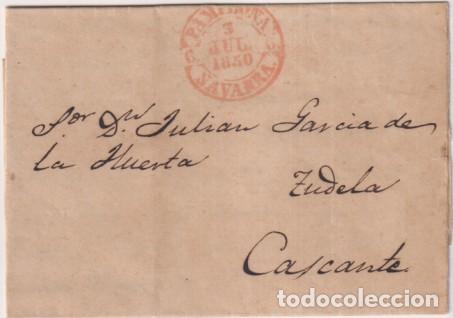 PAMPLONA
3
JUL.
1850
NAVARRA.
Sor Dn Julian Garcia de
la Huerta
Tudela
Cascante
todocoleccion.net